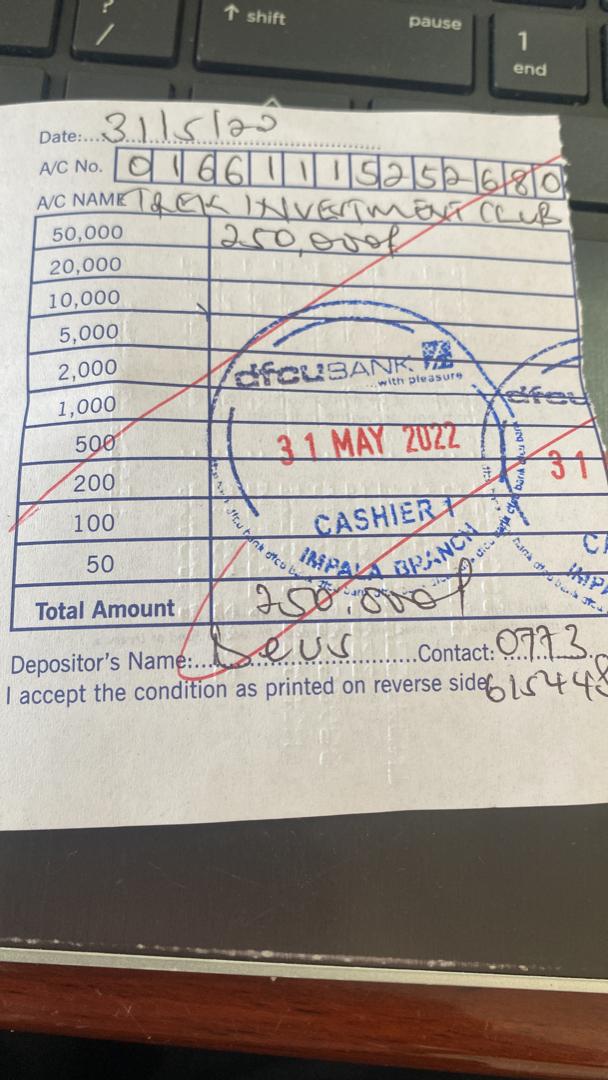 ?
/
↑ shift
pause
1
end
Date:....31/5/22
A/C No. 01661115252680
A/C NAME TREK INVESTMENT CLUB
50,000 250,000/
20,000
10,000
5,000
2,000
1,000
500
200
100
50
dfcu BANK
...with pleasure
31 MAY 2022
CASHIER 1
IMPALA BRANCH
dfcu
31
CA
IMPA
Total Amount 250,000/
Depositor's Name:....Deus..................Contact: 0773
I accept the condition as printed on reverse side 615448